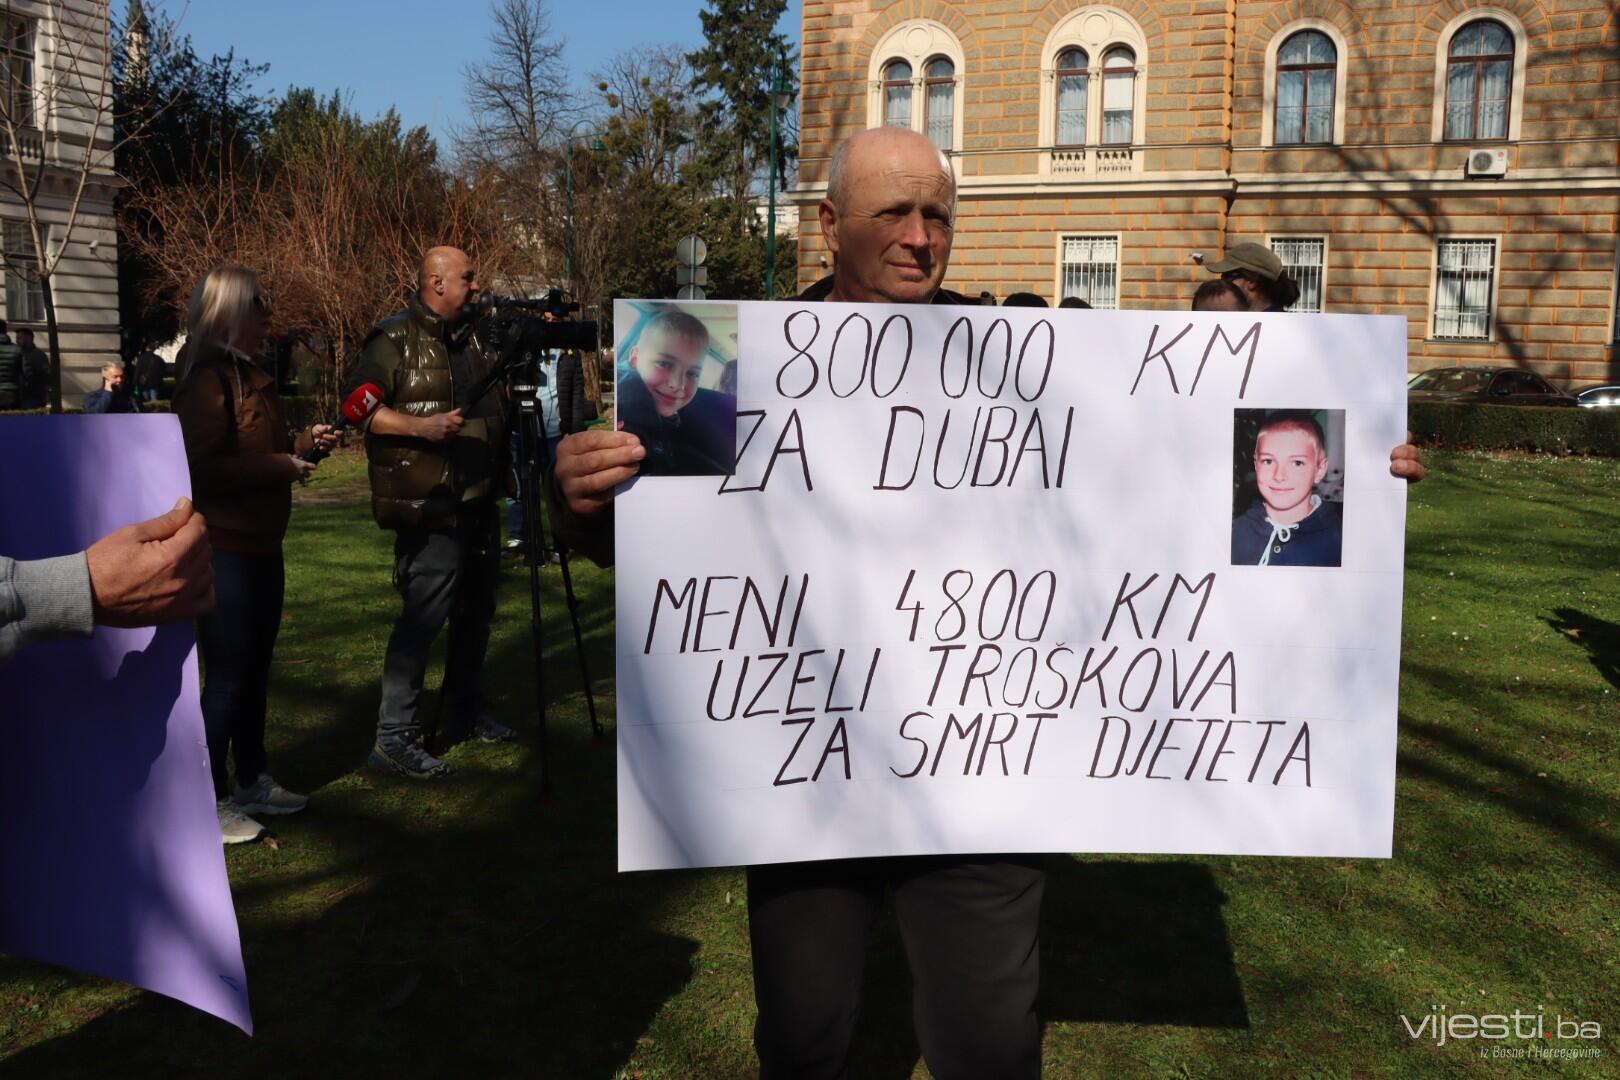 800.000 KM
ZA DUBAI
MENI 4800 KM
UZELI TROŠKOVA
ZA SMRT DJETETA
vijesti.ba
iz Bosne i Hercegovine